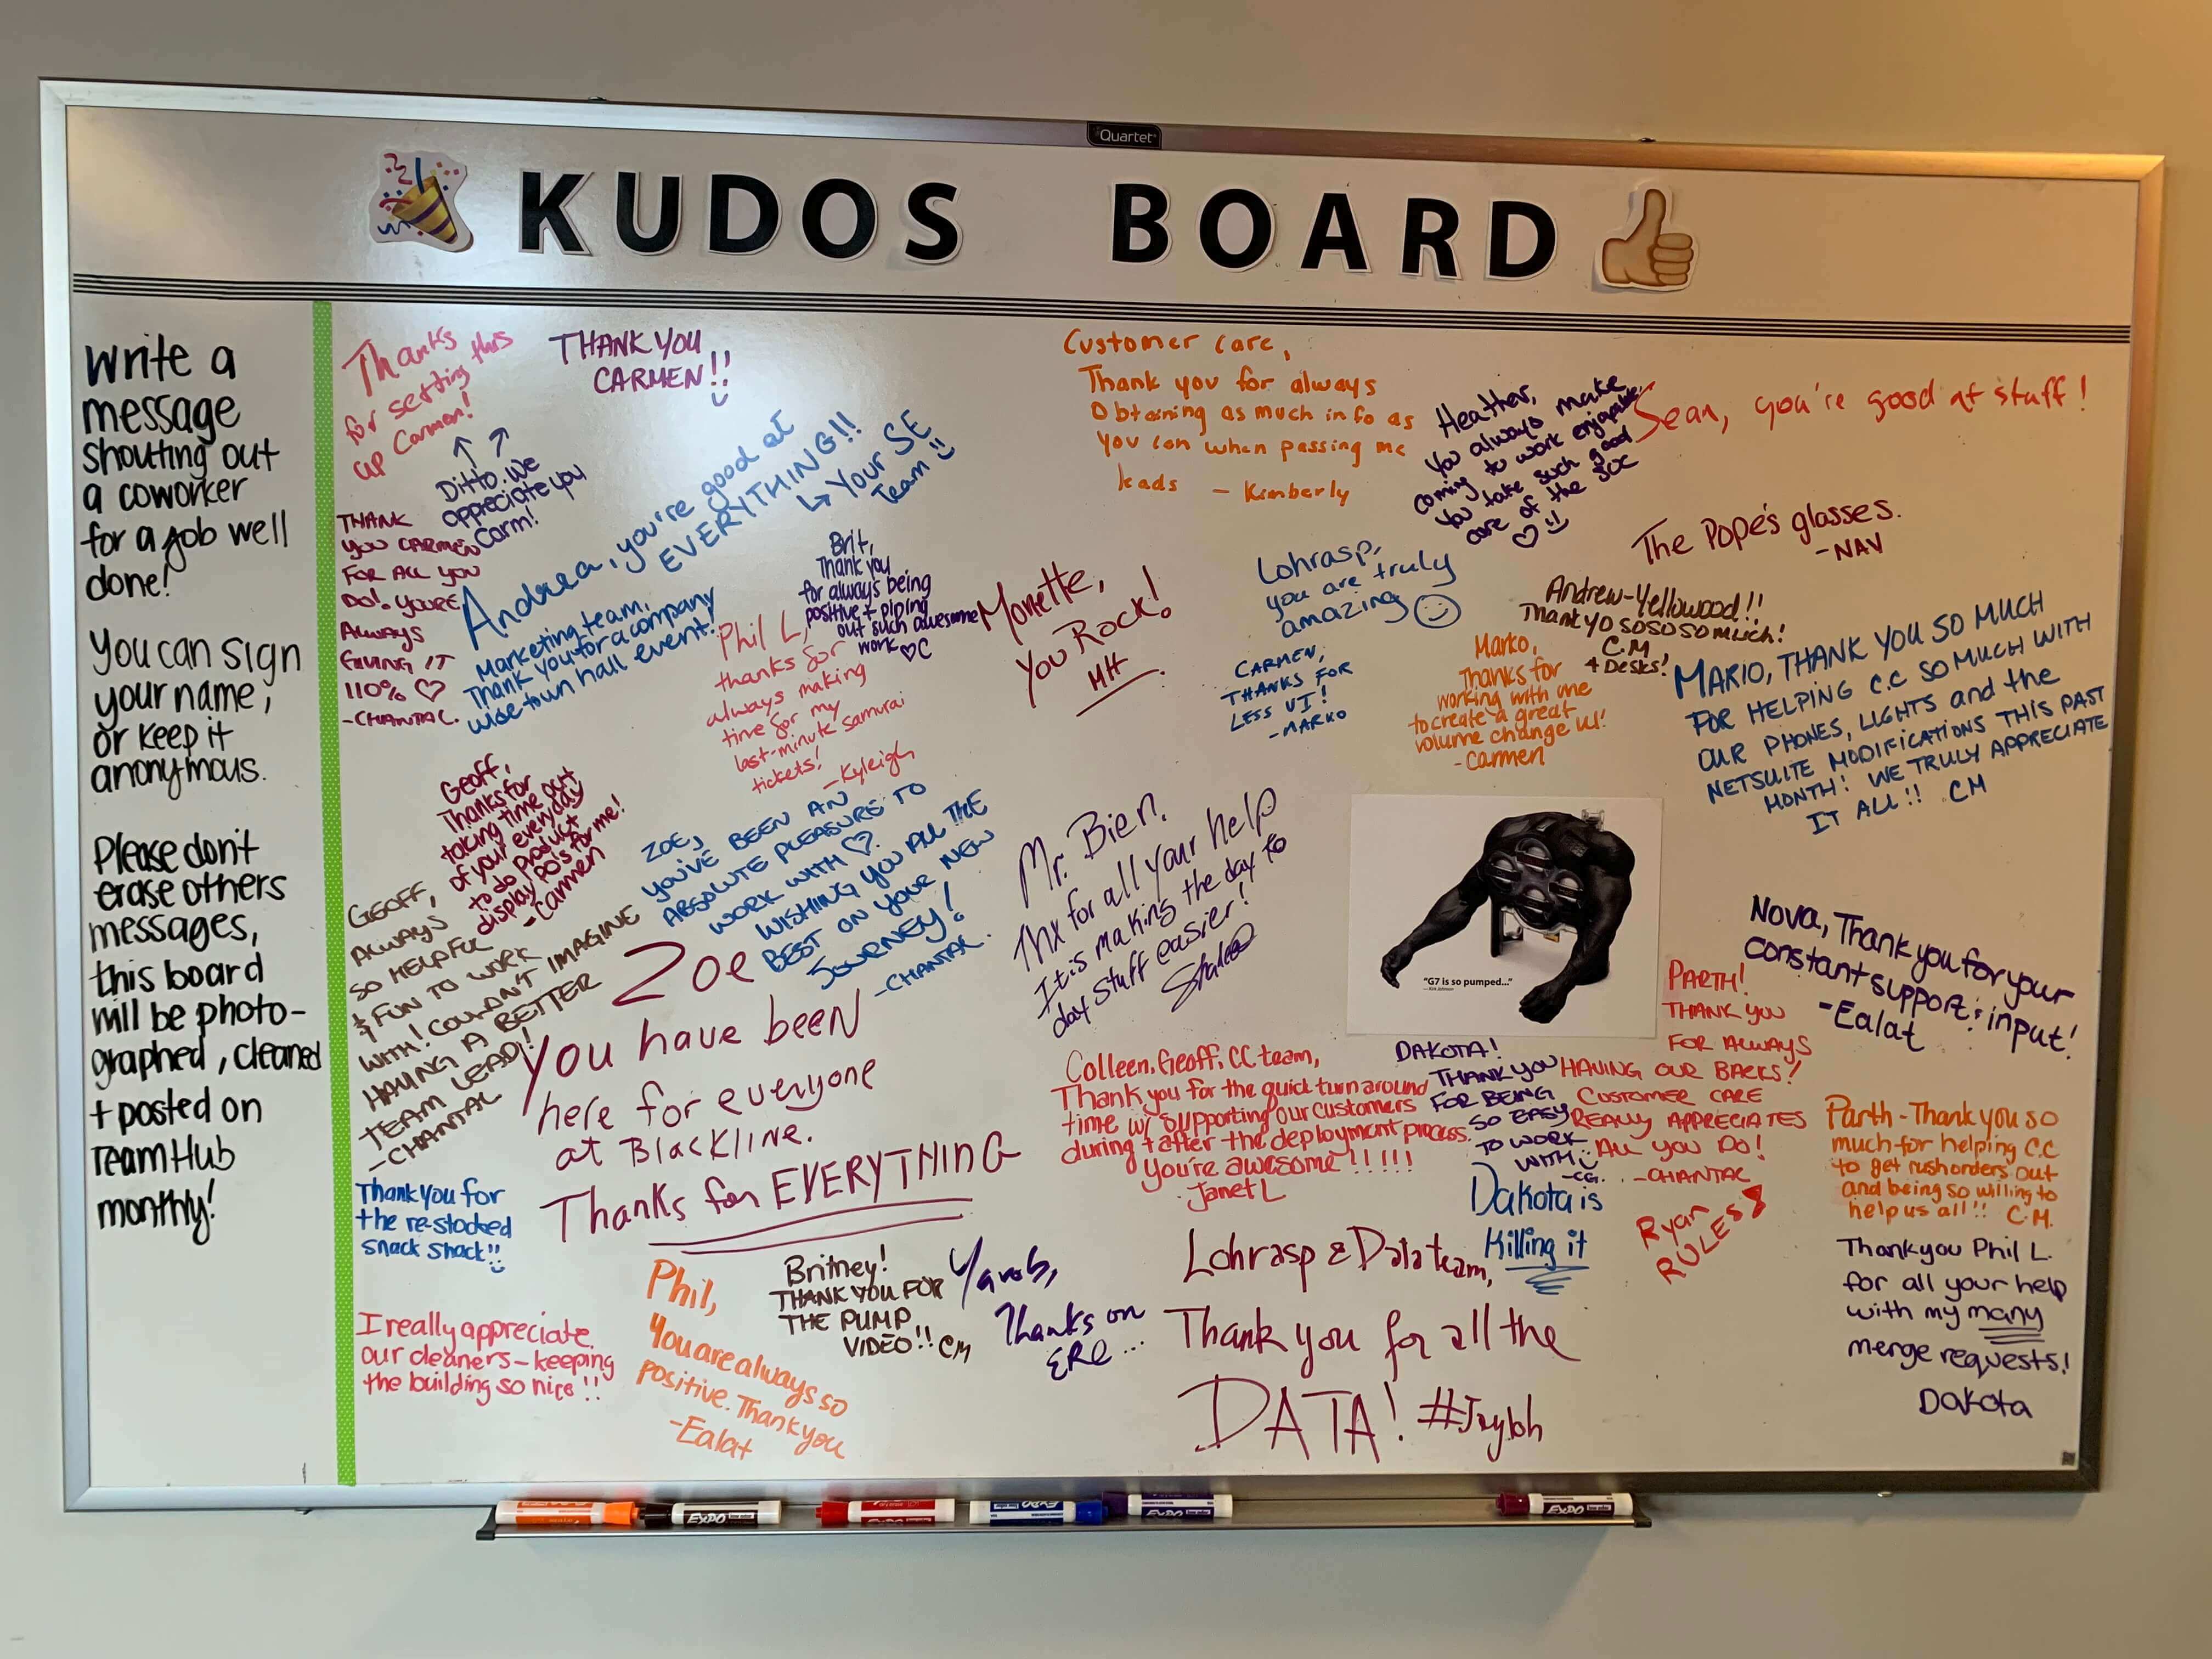 Quartet
KUDOS BOARD
Write a
message
shouting out
a coworker
for a job well
done!
You can sign
your name,
or keep it
anonymous.
Please don't
erase others
messages,
this board
will be photo-
graphed, cleaned
+ posted on
TeamHub
monthly!
Thanks
for setting this
up Carmen!
THANK YOU
CARMEN!!
Ditto. We
appreciate you
Carm!
THANK
YOU CARMEN
FOR ALL YOU
DO! YOU'RE
ALWAYS
GIVING IT
110% ♡
-CHANTAL.
Andrea, you're good at
EVERYTHING!!
↳ Your SE
Team
Marketing team,
Thank you for a company
wide town hall event!
Brit,
Thank you
for always being
positive + piping
out such awesome
work ♡ C
Phil L,
thanks for
always making
time for my
last-minute samurai
tickets!
-Kyleigh
Monette,
You Rock!
MH
Customer care,
Thank you for always
Obtaining as much info as
you can when passing me
leads - Kimberly
Heather,
You always make
coming to work enjoyable.
You take such good
care of the SOC
♡ !!
Sean, you're good at stuff!
The Pope's glasses.
-NAV
Lohrasp,
you are truly
amazing
Andrew-Yellowood!!
Thank YO SO SO SO much!
C.M
4 Desks!
CARMEN,
THANKS FOR
LESS VI!
-MARKO
Marko,
Thanks for
working with me
to create a great
volume change UI!
-Carmen
MARIO, THANK YOU SO MUCH
FOR HELPING C.C SO MUCH WITH
OUR PHONES, LIGHTS and the
NETSUITE MODIFICATIONS THIS PAST
MONTH! WE TRULY APPRECIATE
IT ALL!! CM
Geoff,
Thanks for
taking time out
of your everyday
to do product
display POIs for me!
-Carmen
GEOFF,
ALWAYS
SO HELPFUL
& FUN TO WORK
WITH! COULDN'T IMAGINE
HAVING A BETTER
TEAM LEAD!
-CHANTAL
ZOE,
YOU'VE BEEN AN
ABSOLUTE PLEASURE TO
WORK WITH ♡.
WISHING YOU ALL THE
BEST ON YOUR NEW
JOURNEY!
-CHANTAL.
Zoe
You have been
here for everyone
at Blackline.
Thanks for EVERYTHING
Mr. Bien,
Thx for all your help
It is making the day to
day stuff easier!
"G7 is so pumped..."
Nova, Thank you for your
constant support & input!
-Ealat
PARTH!
THANK YOU
FOR ALWAYS
HAVING OUR BACKS!
CUSTOMER CARE
REALLY APPRECIATES
ALL YOU DO!
-CHANTAL
Colleen, Geoff, CC team,
Thank you for the quick turn around
time w/ supporting our customers
during + after the deployment process.
You're awesome!!!!!!
Janet L
DAKOTA!
THANK YOU
FOR BEING
SO EASY
TO WORK
WITH
-CG.
Dakota is
Killing it
Ryan
RULES
Parth - Thank you so
much for helping C.C
to get rush orders out
and being so willing to
help us all!! C.M.
Thank you for
the re-stocked
snack shack!!
I really appreciate
our cleaners - keeping
the building so nice!!
Phil,
You are always so
positive. Thank you
-Ealat
Britney!
THANK YOU FOR
THE PUMP
VIDEO!! CM
Yarob,
Thanks on
ERC...
Lohrasp & Data team,
Thank you for all the
DATA! #Jrybh
Thank you Phil L.
for all your help
with my many
merge requests!
Dakota
EXPO
EXPO
EXPO